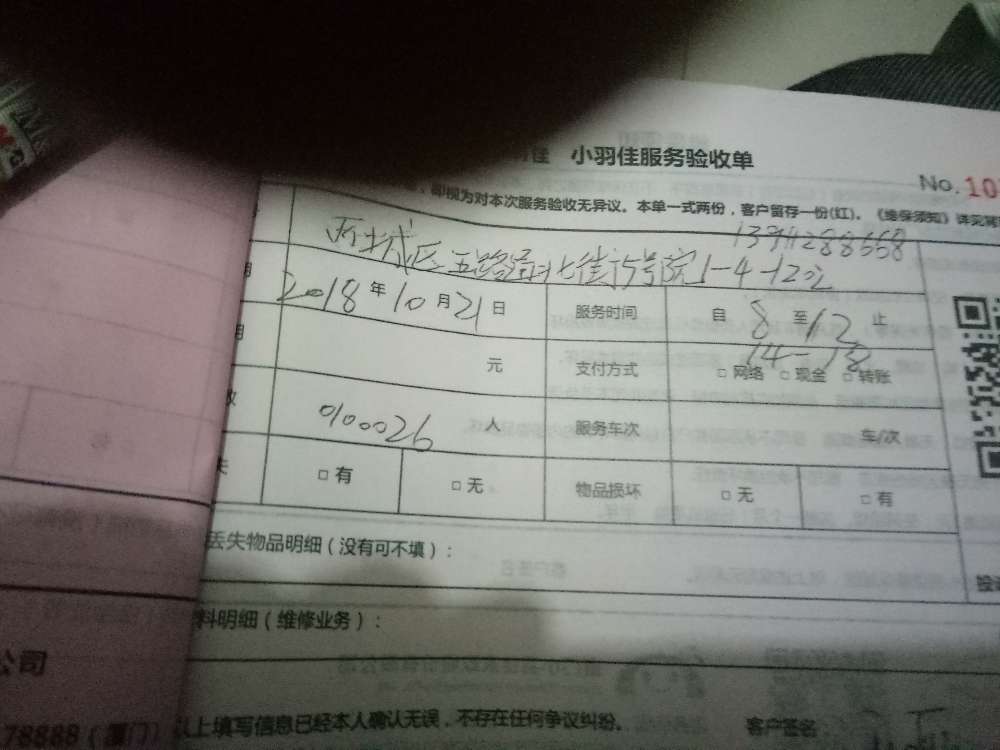 小羽佳服务验收单
No. 10
,即视为对本次服务验收无异议。本单一式两份,客户留存一份(红)。《维保须知》详见背
西城区五路居北街 号院1-4-1202
2018年10月21日 服务时间 自8至12止
14-18
元 支付方式 □网络 □现金 □转账
010026人 服务车次 车/次
□有 □无 物品损坏 □无 □有
丢失物品明细(没有可不填):
料明细(维修业务):
公司
78888(厦门)
以上填写信息已经本人确认无误,不存在任何争议纠纷。
客户签名: